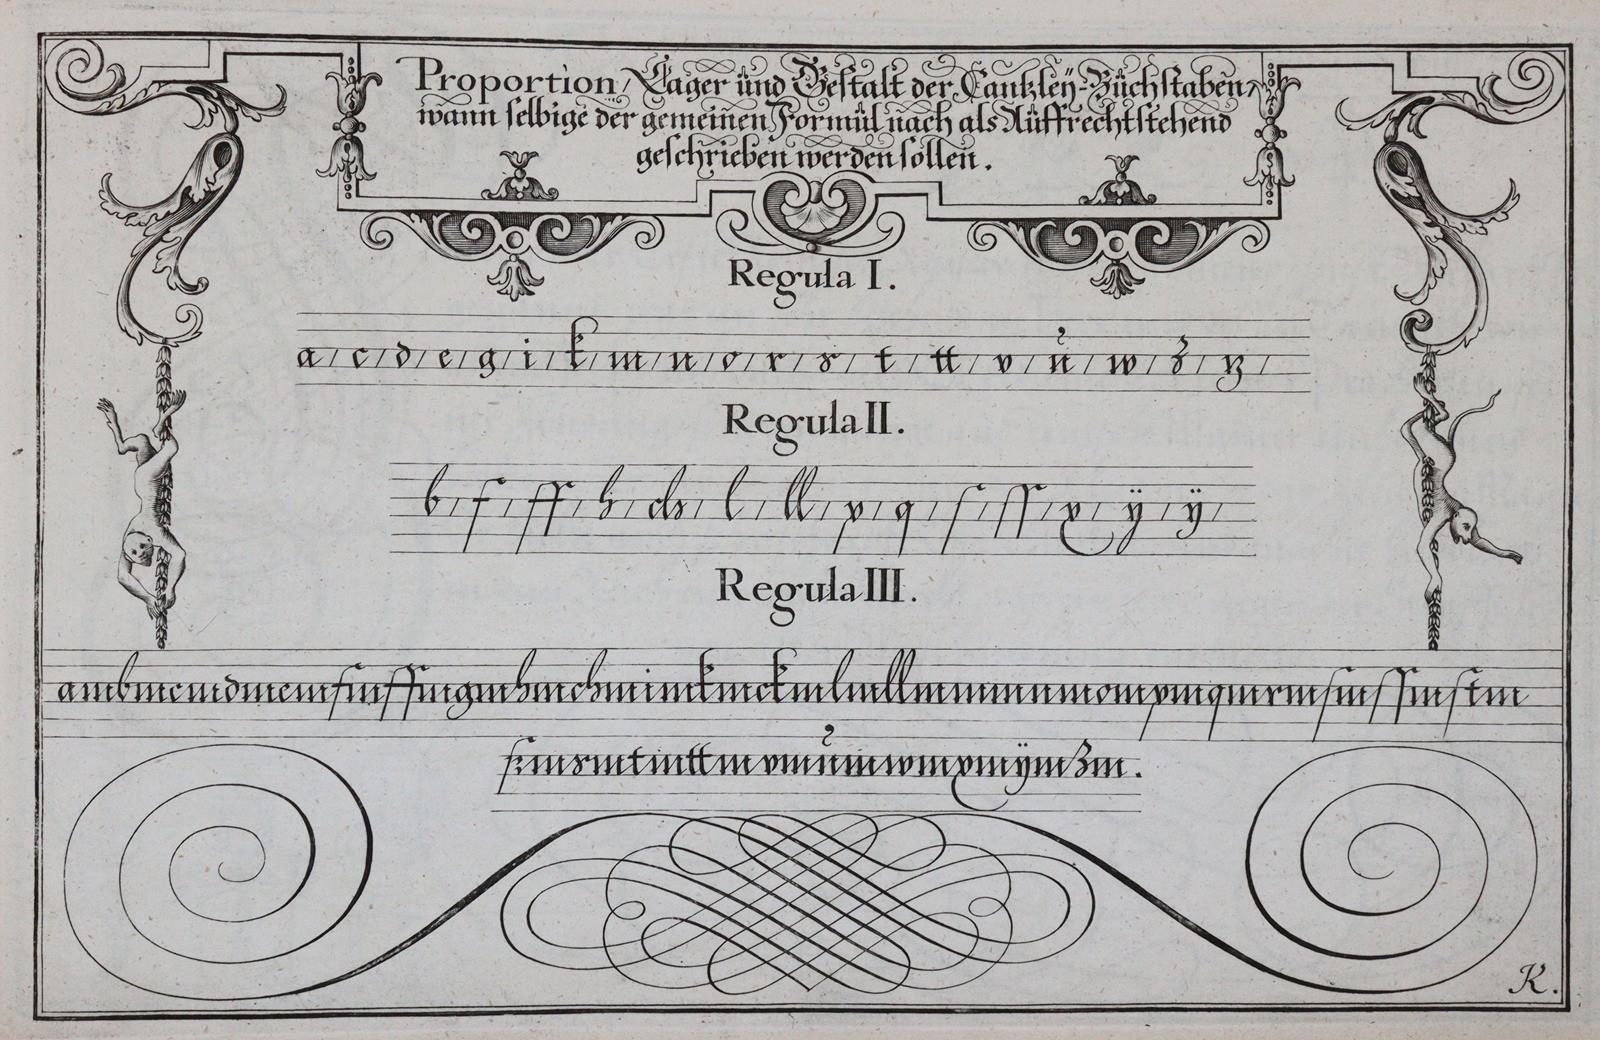 Proportion, Lager ünd Gestalt der Cantzleÿ-Büchstaben,
wann selbige der gemeinen Formül nach als Aüffrechtstehend
geschrieben werden sollen.
Regula I.
a/c/d/e/g/i/k/m/n/o/r/r/t/tt/v/ü/w/z/tz/
Regula II.
b/f/ff/h/ch/l/ll/p/q/ſ/ſſ/x/ÿ/ÿ/
Regula III.
ambmcmdmemfmffmgmhmchmimkmckmlmllmmmnmompmqmrmſmſſmſtm
ſzmsmtmttmvmümwmxmÿmzm.
K.